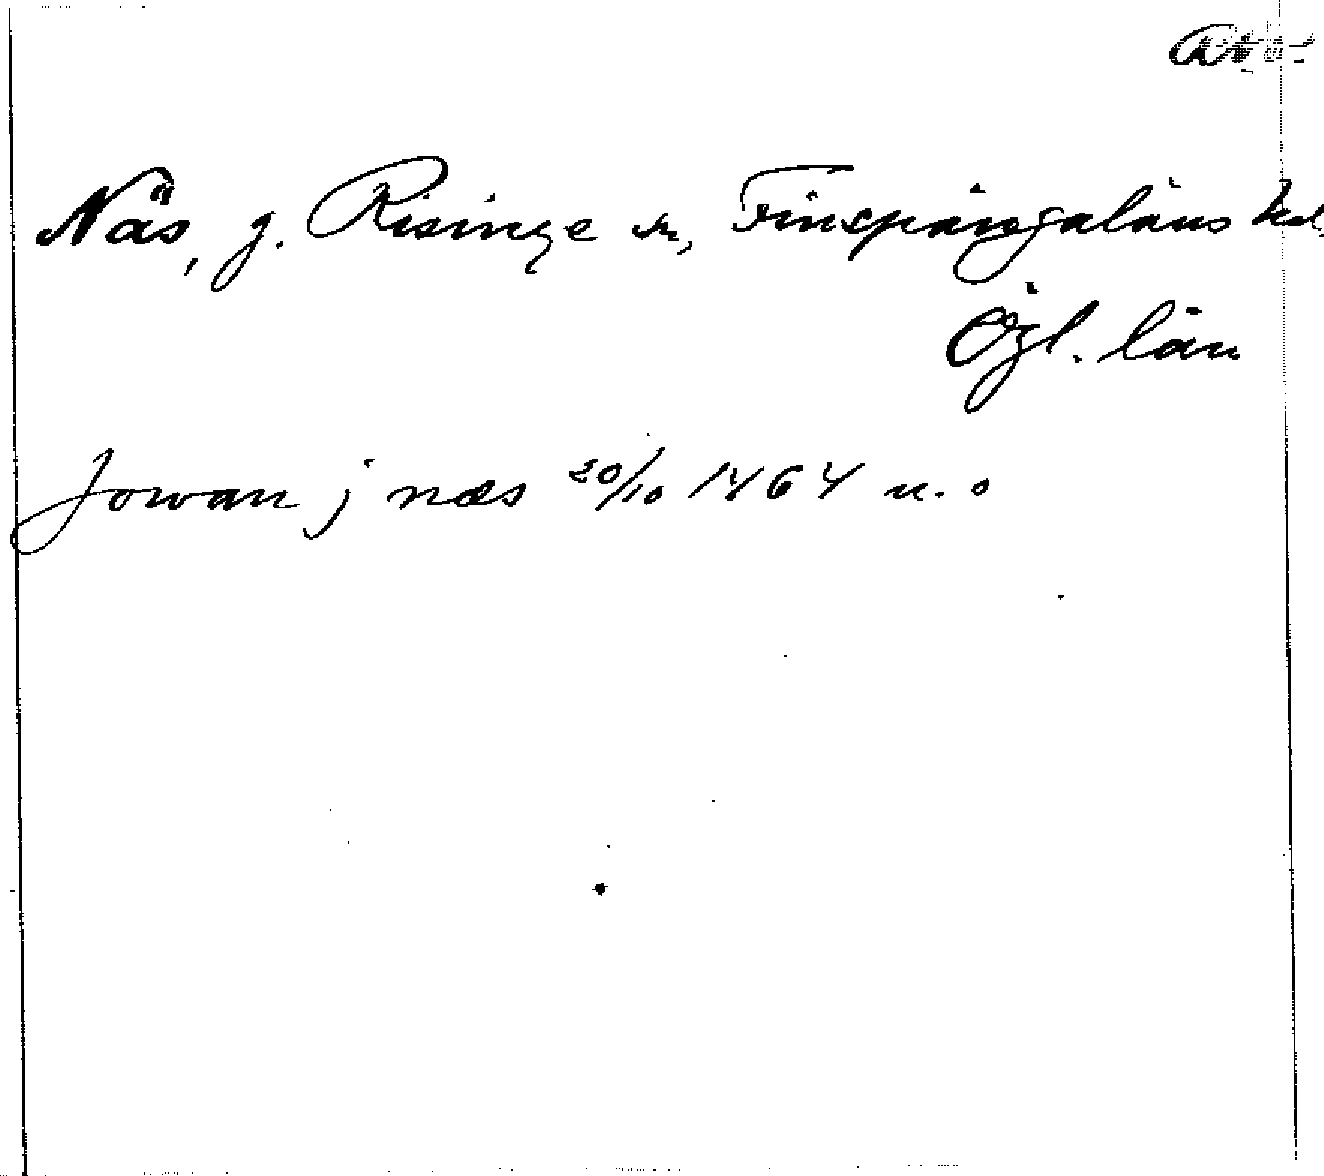 Avskr.
Näs, g. Risinge sn, Finspångaläns hd.
Ögl. län
Jowan j næs 20/10 1464 u. o